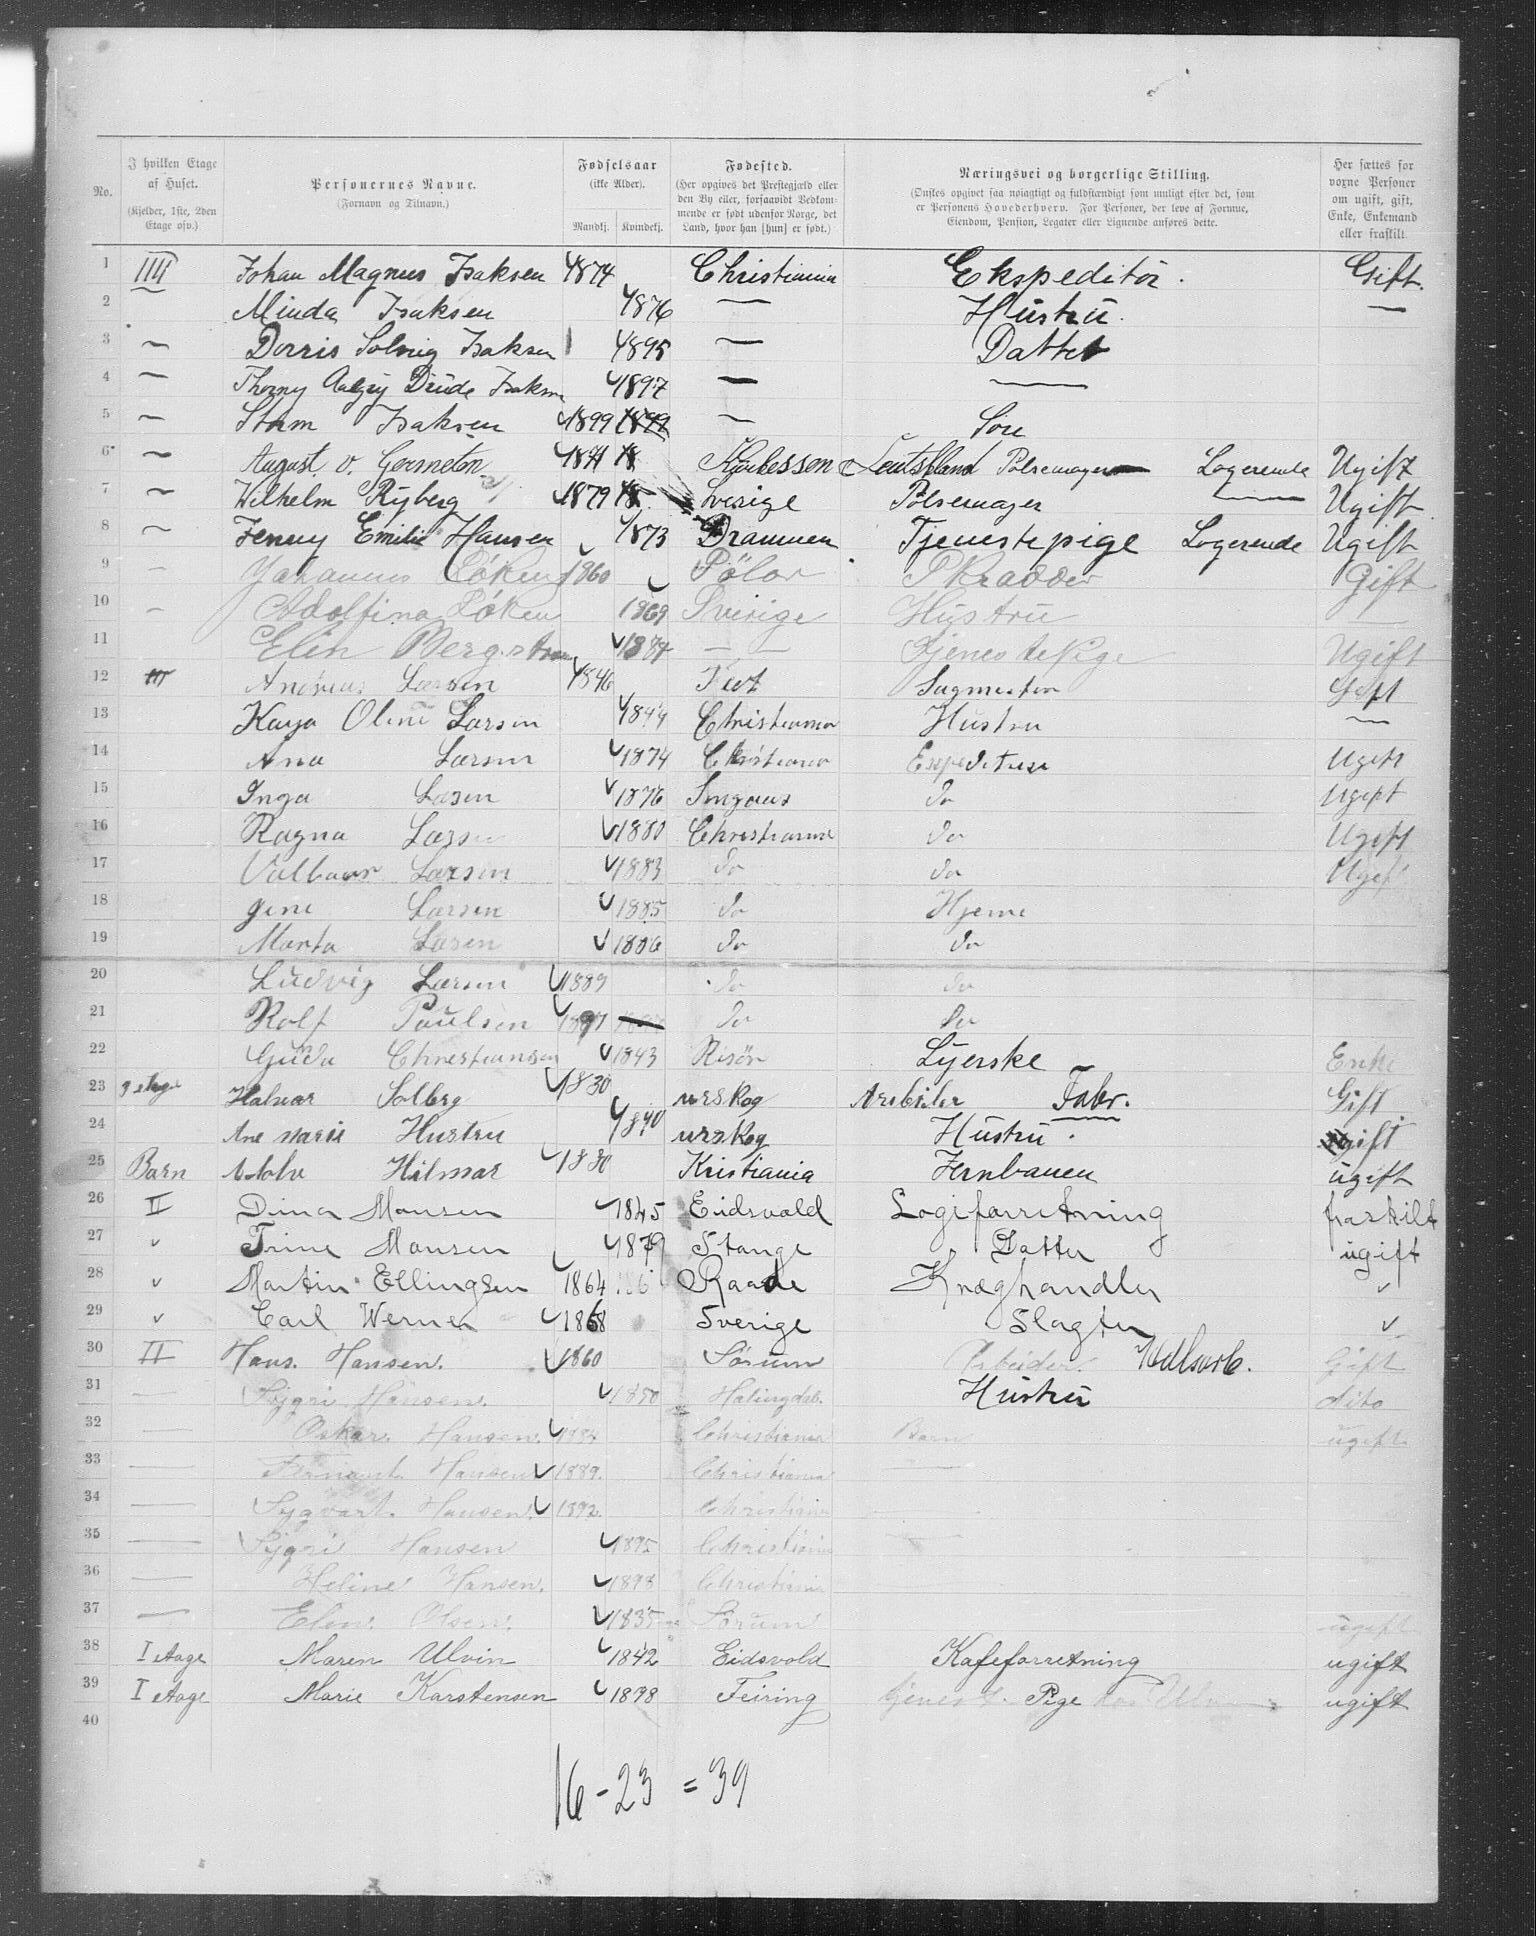 No.
I hvilken Etage af Huset. (Kjelder, 1ste, 2den Etage osv.)
Personernes Navne. (Fornavn og Tilnavn.)
Fødselsaar (ikke Alder). Mandkj. Kvindekj.
Fødested. (Her opgives det Prestegjæld eller den By eller, forsaavidt Vedkommende er født udenfor Norge, det Land, hvor han [hun] er født.)
Næringsvei og borgerlige Stilling. (Ønskes opgivet saa nøiagtigt og fuldstændigt som muligt efter det, som er Personens Hovederhverv. For Personer, der leve af Formue, Eiendom, Pension, Legater eller Lignende anføres dette.
Her sættes for voxne Personer om ugift, gift, Enke, Enkemand eller fraskilt
1 IIII Johan Magnus Isaksen 1874 Christiania Ekspeditør. Gift.
2 — Minda Isaksen 1876 — Hustru. —
3 — Dorris Solveig Isaksen 1895 — Datter
4 — Thorny Drude Isaksen 1897 — —
5 — Storm Isaksen 1899 1899 — Søn
6 — August v. 1871 18 Pølsemager Logerende Ugift
7 — Wilhelm Ryberg 1879 18 Sverige Pølsemager — Ugift
8 — Jenny Emilie Hansen 1873 Drammen Tjenestepige Logerende Ugift
9 — Johannes Røken 1860 Skrædder Gift
10 — Adolfina Røken 1869 Sverige Hustru —
11 Elin Bergstrøm 1874 — — Tjenestepige Ugift
12 III Andreas Larsen 1846 Fet Sagmester Gift
13 Kaja Oline Larsen 1849 Christiania Hustru —
14 Ana Larsen 1874 Christiania Ugift
15 Inga Larsen 1876 do Ugift
16 Ragna Larsen 1880 Christiania do Ugift
17 Valborg Larsen 1883 do do Ugift
18 Jeni Larsen 1885 do Hjeme
19 Marta Larsen 1886 do do
20 Ludvig Larsen 1889 do do
21 Rolf Paulsen 1897 do do
22 Christiansen 1843 Risør Syerske Enke
23 Halvor Solberg 1830 urskog Arbeider Fabr. Gift
24 Ane Marie Hustru 1840 urskog Hustru. gift
25 Barn Hilmar 1880 Kristiania Jernbanen ugift
26 II Dina Monsen 1845 Eidsvold Logiforretning fraskilt
27 " Trine Monsen 1879 Stange Datter ugift
28 " Martin Ellingsen 1864 186 Raade Kræghandler "
29 " Carl Werner 1868 Sverige Slagter "
30 II Hans. Hansen. 1860 Sørum Arbeider. Gift
31 — Sigri Hansen. 1850 Halingdal. Hustru dito
32 — Oskar. Hansen. 1884 Christiania Barn ugift.
33 — Hansen 1889. Christiania —
34 — Sygvart. Hansen. 1892. Christiania —
35 — Sigri Hansen 1895 Christiania —
36 — Heline Hansen. 1898 Christiania
37 — Elen. Olsen. 1835 Sørum ugift
38 I etage Maren Ulvin 1842 Eidsvold Kafeforretning ugift
39 I etage Marie Karstensen 1878 Feiring Pige hos Ulvin ugift
40
16 - 23 = 39